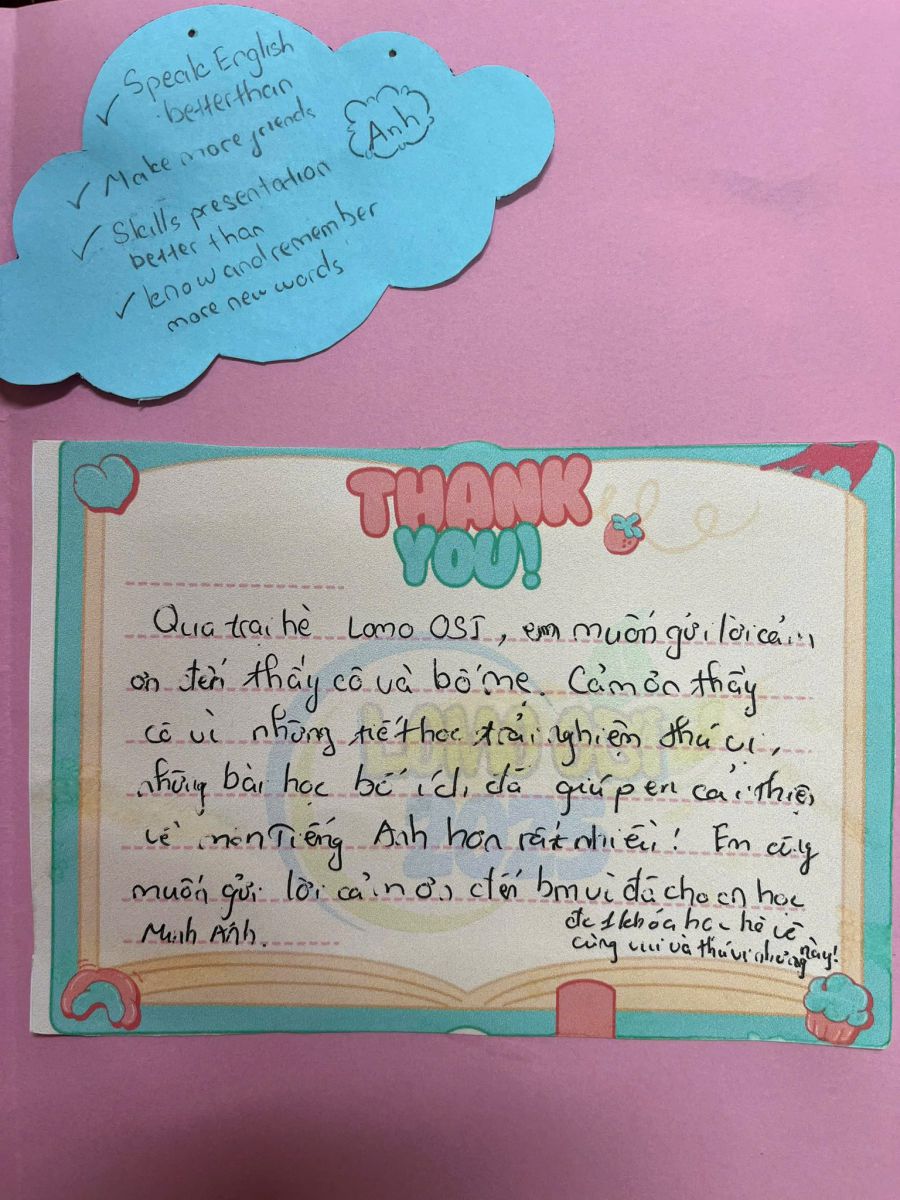 ✓ Speak English
better than
✓ Make more friends
Anh
✓ Skills presentation
better than
✓ know and remember
more new words
THANK
YOU!
Qua trại hè Lomo OSI, em muốn gửi lời cảm
ơn đến thầy cô và bố mẹ. Cảm ơn thầy
cô vì những tiết học trải nghiệm thú vị,
những bài học bổ ích, đã giúp em cải thiện
về môn Tiếng Anh hơn rất nhiều! Em cũng
muốn gửi lời cảm ơn đến bm vì đã cho em học
đc 1 khóa học hè vô
cùng vui và thú vị như này!
Minh Anh.
LOMO OSI
2025